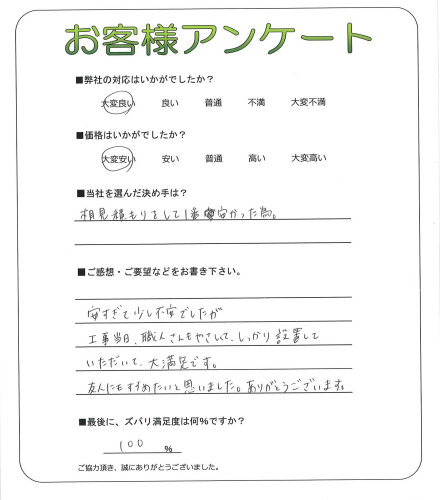 お客様アンケート
■弊社の対応はいかがでしたか?
大変良い 良い 普通 不満 大変不満
■価格はいかがでしたか?
大変安い 安い 普通 高い 大変高い
■当社を選んだ決め手は?
相見積もりをして1番安かった為。
■ご感想・ご要望などをお書き下さい。
安すぎて少し不安でしたが
工事当日、職人さんもやさしくて、しっかり設置して
いただいて、大満足です。
友人にもすすめたいと思いました。ありがとうございます。
■最後に、ズバリ満足度は何%ですか?
100 %
ご協力頂き、誠にありがとうございました。